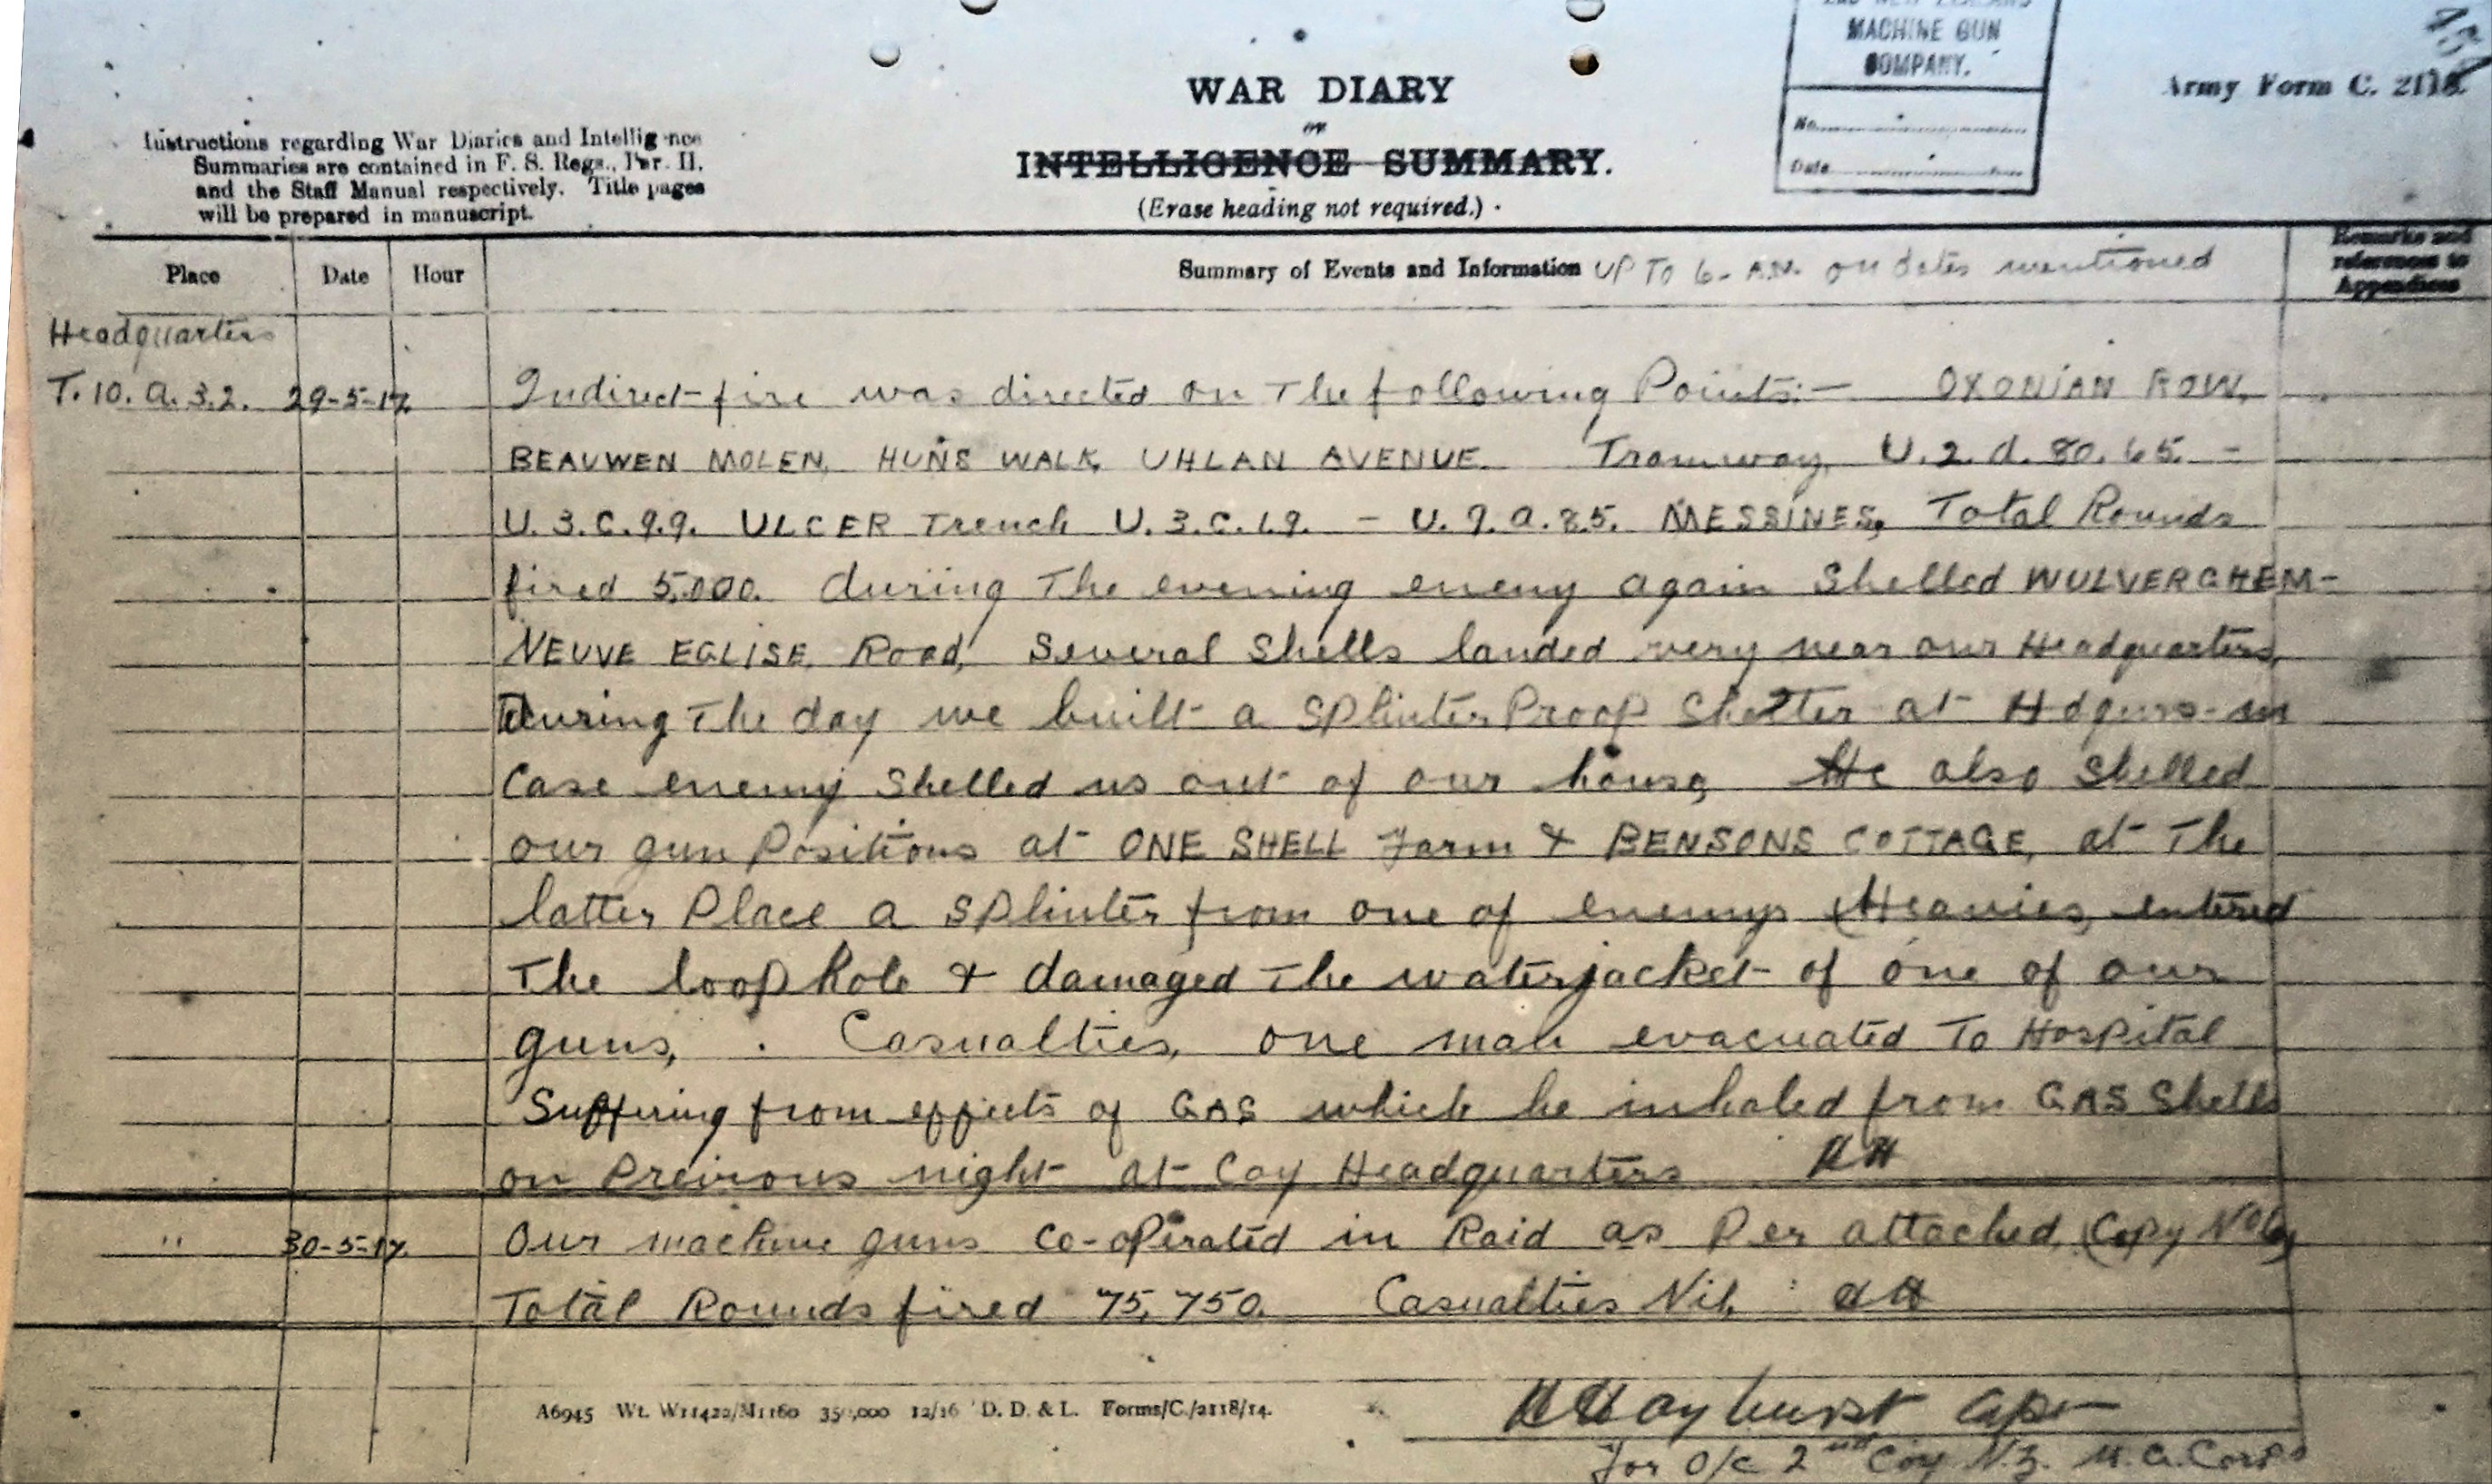 2ND NEW ZEALAND
MACHINE GUN
COMPANY.
No.
Date
Army Form C. 2118.
WAR DIARY
or
INTELLIGENCE SUMMARY.
(Erase heading not required.)
Instructions regarding War Diaries and Intelligence
Summaries are contained in F. S. Regs., Par. II.
and the Staff Manual respectively. Title pages
will be prepared in manuscript.
Place Date Hour Summary of Events and Information UP TO 6- A.M. on dates mentioned Remarks and
references to
Appendices
Headquarters
T. 10. a. 3.2. 29-5-17. Indirect fire was directed on The following Points:— OXONIAN ROW,
BEAUWEN MOLEN, HUNS WALK, UHLAN AVENUE. Tramway, U.2.d.80.65. -
U.3.C.9.9. ULCER Trench U.3.C.1.9. - U.9.a.8.5. MESSINES, Total Rounds
fired 5,000. during The evening enemy again Shelled WULVERGHEM-
NEUVE EGLISE. Road, Several Shells landed very near our Headquarters,
During The day we built a Splinter Proof Shelter at Hdqurs- in
Case enemy Shelled us out of our house, He also Shelled
our gun Positions at ONE SHELL Farm & BENSONS COTTAGE, at The
latter Place a Splinter from one of enemys Heavies, entered
The loophole & damaged The waterjacket of one of our
guns, . Casualties, one man evacuated To Hospital
Suffering from effects of GAS which he inhaled from GAS Shells
on Previous night at Coy Headquarters HH
" 30-5-17. Our machine guns Co-operated in Raid as Per attached, (Copy No 6,
Total Rounds fired 75,750. Casualties Nil, HH
A6945 Wt. W11422/M1160 350,000 12/16 D. D. & L. Forms/C./2118/14.
Hayhurst Capt
For O/c 2nd Coy N.Z. M.G. Corps